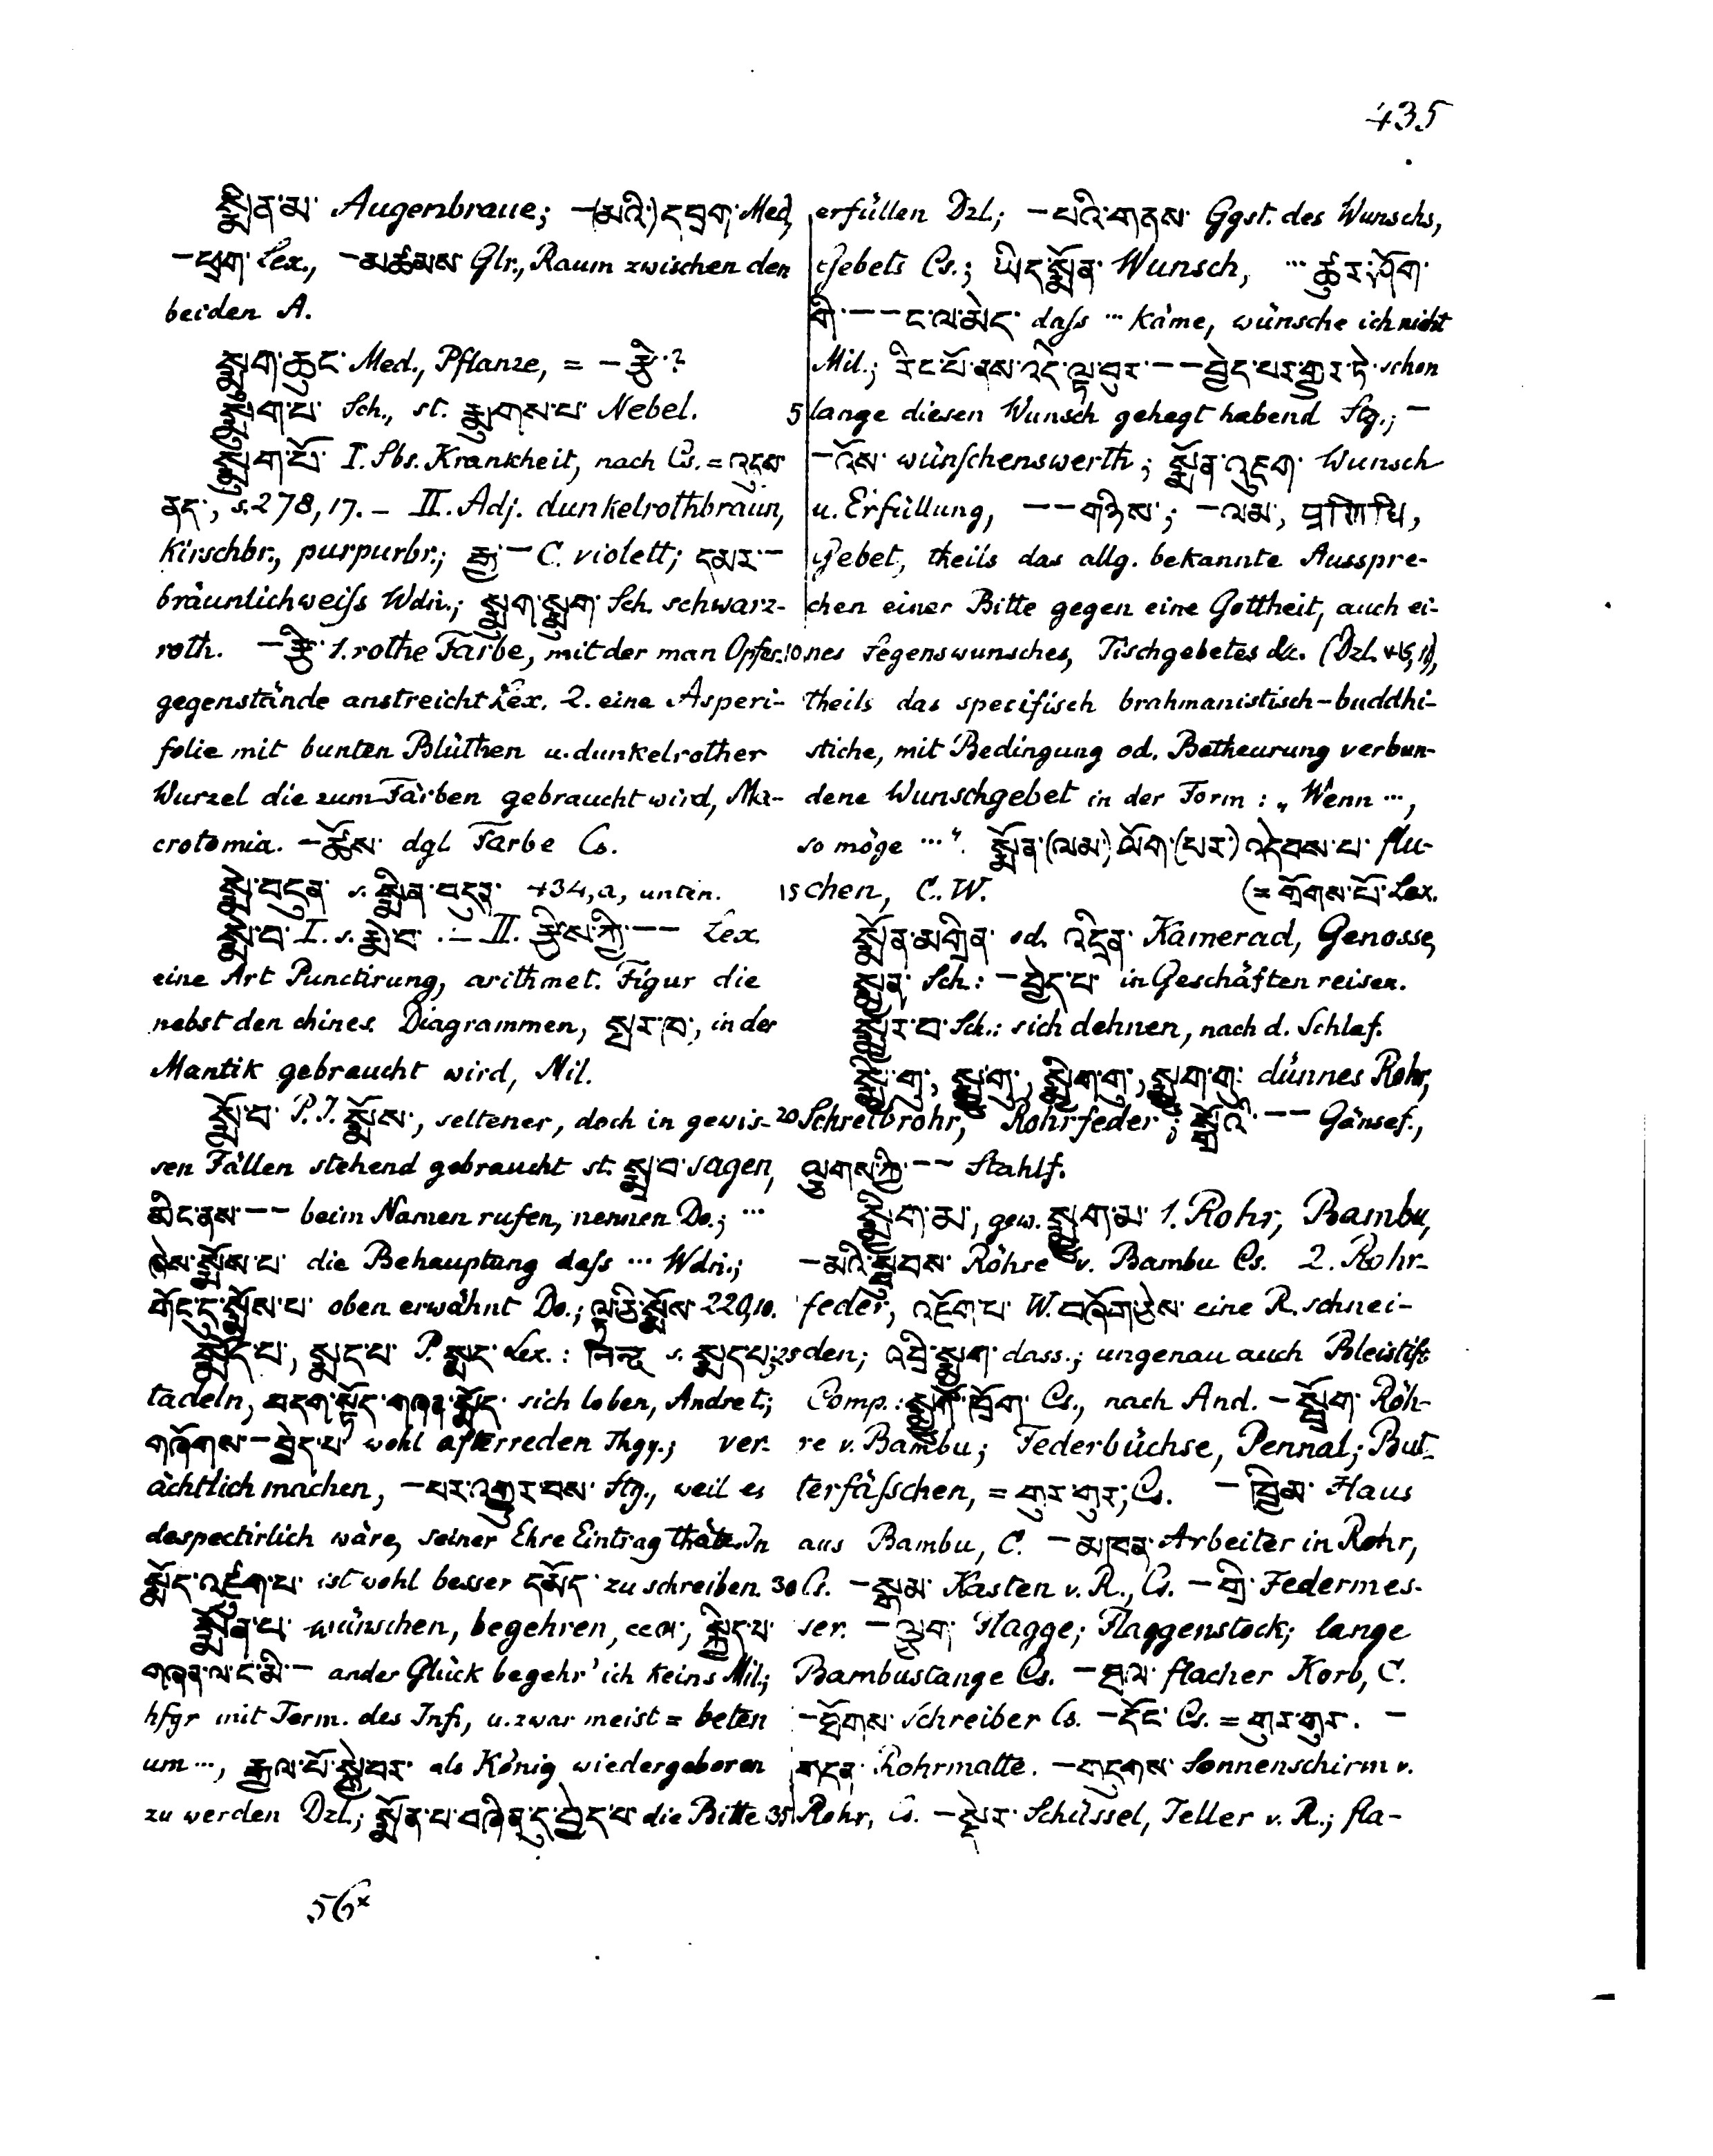 435
སྨིན་མ་ Augenbraue; –(མའི་)དབྲག་ Med.,
–ཕྲག་ Lex., –མཚམས་ Glr., Raum zwischen den
beiden A.
སྨུག་ཆུང་ Med., Pflanze, = –རྩི་?
སྨུག་པ་ Sch., st. རྨུགས་པ་ Nebel.
སྨུག་པོ་ I. Sbs. Krankheit, nach Cs. = འདུས་
ནད་, s. 278, 17. – II. Adj. dunkelrothbraun,
kirschbr., purpurbr.; རྒྱ་– C. violett; དམར་–
bräunlichweiſs Wdn.; སྨུག་སྨུག་ Sch. schwarz-
roth. –རྩི་ 1. rothe Farbe, mit der man Opfer-
gegenstände anstreicht Lex. 2. eine Asperi-
folie mit bunten Blüthen u. dunkelrother
Wurzel die zum Färben gebraucht wird, Ma-
crotomia. –ཚོས་ dgl. Farbe Cs.
སྨེ་བདུན་ s. སྨིན་བདུན་ 434, a, unten.
སྨེ་བ་ I. s. རྨེ་བ་. – II. རྩིས་ཀྱི་–– Lex.
eine Art Punctirung, arithmet. Figur die
nebst den chines. Diagrammen, སྤར་ཁ་, in der
Mantik gebraucht wird, Mil.
སྨོ་བ་ P. I. སྨོས་, seltener, doch in gewis-
sen Fällen stehend gebraucht st. སྨྲ་བ་ sagen,
མིང་ནས་–– beim Namen rufen, nennen Do.; ...
ཞེས་སྨོས་པ་ die Behauptung daſs ... Wdn.;
གོང་དུ་སྨོས་པ་ oben erwähnt Do.; ལྟ་ཅི་སྨོས་ 220, 10.
སྨོད་པ་, སྨད་པ་ P. སྨད་ Lex.: निन्द s. སྨད་པ;
tadeln, བདག་སྟོད་གཞན་སྨོད་ sich loben, Andre t.;
གཞོགས་–བྱེད་པ་ wohl afterreden Thgy.; ver-
ächtlich machen, –པར་འགྱུར་བས་ Stg., weil es
despectirlich wäre, seiner Ehre Eintrag thäte. In
སྨོད་འཛུག་པ་ ist wohl besser དམོད་ zu schreiben.
སྨོན་པ་ wünschen, begehren, cc ལ་, སྐྱིད་པ་
གཞན་ལ་ང་མི་– ander Glück begehr' ich keins Mil.;
hfgr mit Term. des Inf., u. zwar meist = beten
um ..., རྒྱལ་པོ་སྐྱེ་བར་ als König wiedergeboren
zu werden Dzl.; སྨོན་པ་བཞིན་དུ་བྱེད་པ་ die Bitte
erfüllen Dzl.; –པའི་གནས་ Ggst. des Wunschs,
Gebets Cs.; ཡིད་སྨོན་ Wunsch, ... ཚུར་ཤོག་
གི་––ང་ལ་མེད་ daſs ... käme, wünsche ich nicht
Mil.; རིང་པོ་ནས་འདི་ལྟ་བུར་––བྱེད་པར་གྱུར་ཏེ་ schon
5 lange diesen Wunsch gehegt habend Stg.; –
–འོས་ wünſchenswerth; སྨོན་འཇུག་ Wunsch
u. Erfüllung, ––གཉིས་; –ལམ་, प्रणिधि,
Gebet, theils das allg. bekannte Ausspre-
chen einer Bitte gegen eine Gottheit, auch ei-
10 nes Segenswunsches, Tischgebetes &c. (Dzl.
theils das specifisch brahmanistisch-buddhi-
stiche, mit Bedingung od. Betheurung verbun-
dene Wunschgebet in der Form: „Wenn ...,
so möge ...". སྨོན་(ལམ་)ལོག་(པར་)འདེབས་པ་ flu-
15 chen, C. W. (= གྲོགས་པོ་ Lex.
སྨོན་མགྲིན་ od. འདྲིན་ Kamerad, Genosse,
སྨྱན་ Sch.: –བྱེད་པ་ in Geschäften reisen.
སྨྱུར་བ་ Sch.: sich dehnen, nach d. Schlaf.
སྨྱི་གུ་, སྨྱུ་གུ་, སྨྱིག་གུ་, སྨྱུག་གུ་ dünnes Rohr,
20 Schreibrohr, Rohrfeder; སྒྲོའི་–– Gänsef.,
ལྕགས་ཀྱི་–– Stahlf.
སྨྱིག་མ་, gew. སྨྱུག་མ་ 1. Rohr, Bambu,
–མའི་སྦུབས་ Röhre v. Bambu Cs. 2. Rohr-
feder, འཇོག་པ་ W. བཞོག་ཅེས་ eine R. schnei-
25 den; འབྲི་སྨྱུག་ dass.; ungenau auch Bleistift
Comp.: སྨྱུ་གུ་གྲོག་ Cs., nach And. –སྦྲོག་ Röh-
re v. Bambu; Federbüchse, Pennal; But-
terfäſschen, = གུར་གུར་; Cs. –ཁྲིམ་ Haus
aus Bambu, C. –མཁན་ Arbeiter in Rohr,
30 Cs. –སྒམ་ Kasten v. R., Cs. –གྲི་ Federmes-
ser. –ལྕུག་ Flagge; Flaggenstock; lange
Bambustange Cs. –ཐལ་ flacher Korb, C.
–ཐོགས་ Schreiber Cs. –དོང་ Cs. = གུར་གུར་. –
གདན་ Rohrmatte. –གདུགས་ Sonnenschirm v.
35 Rohr, Cs. –སྡེར་ Schüssel, Teller v. R.; fla-
56*